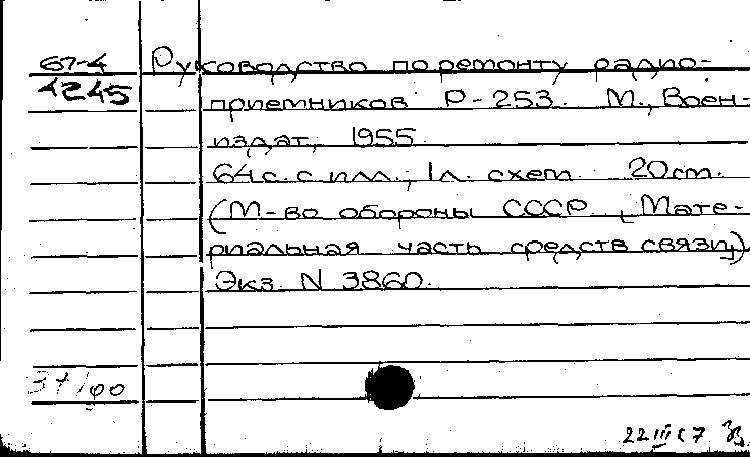 67-4 Руководство по ремонту радио-
4245 приемников Р-253. М., Воен-
издат, 1955.
64 с. с илл., 1 л. схем. 20 см.
(М-во обороны СССР. Мате-
риальная часть средств связи)
Экз. N 3860.
37/
22 III 67